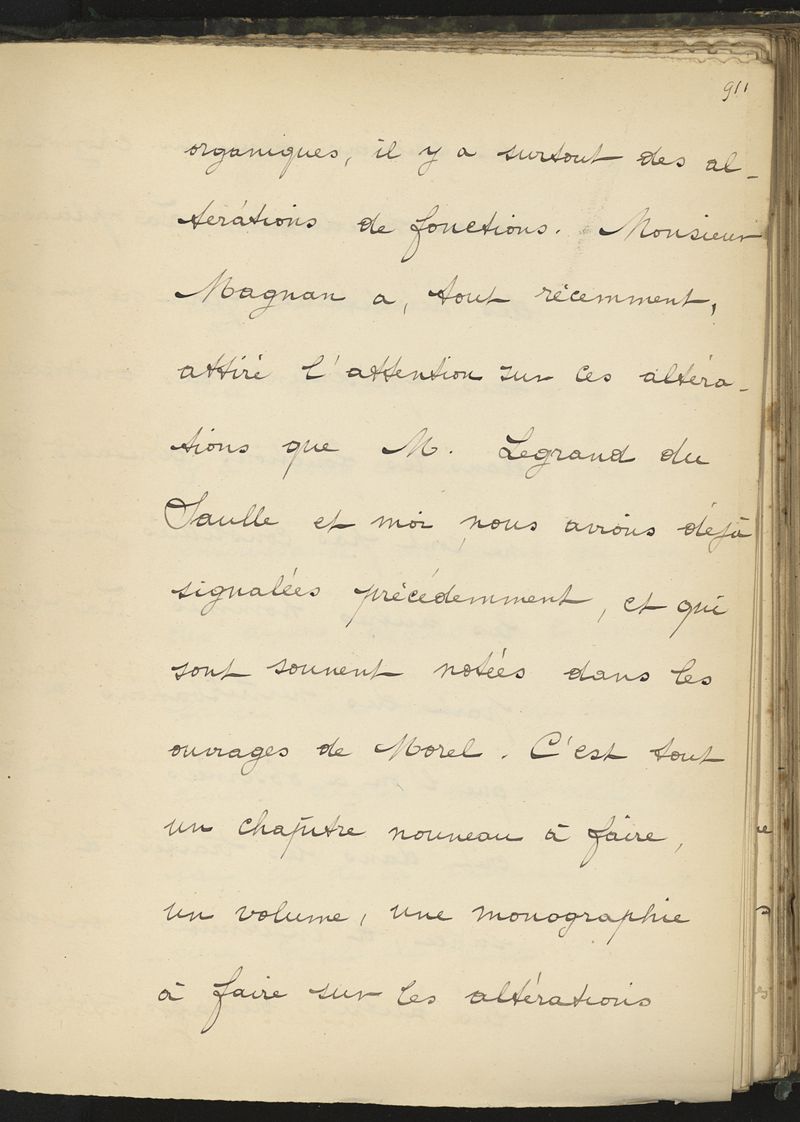 911
organiques, il y a surtout des al-
térations de fonctions. Monsieur
Magnan a, tout récemment,
attiré l'attention sur ces altéra-
tions que M. Legrand du
Saulle et moi nous avions déjà
signalées précédemment, et qui
sont souvent notées dans les
ouvrages de Morel. C'est tout
un chapitre nouveau à faire,
un volume, une monographie
à faire sur les altérations